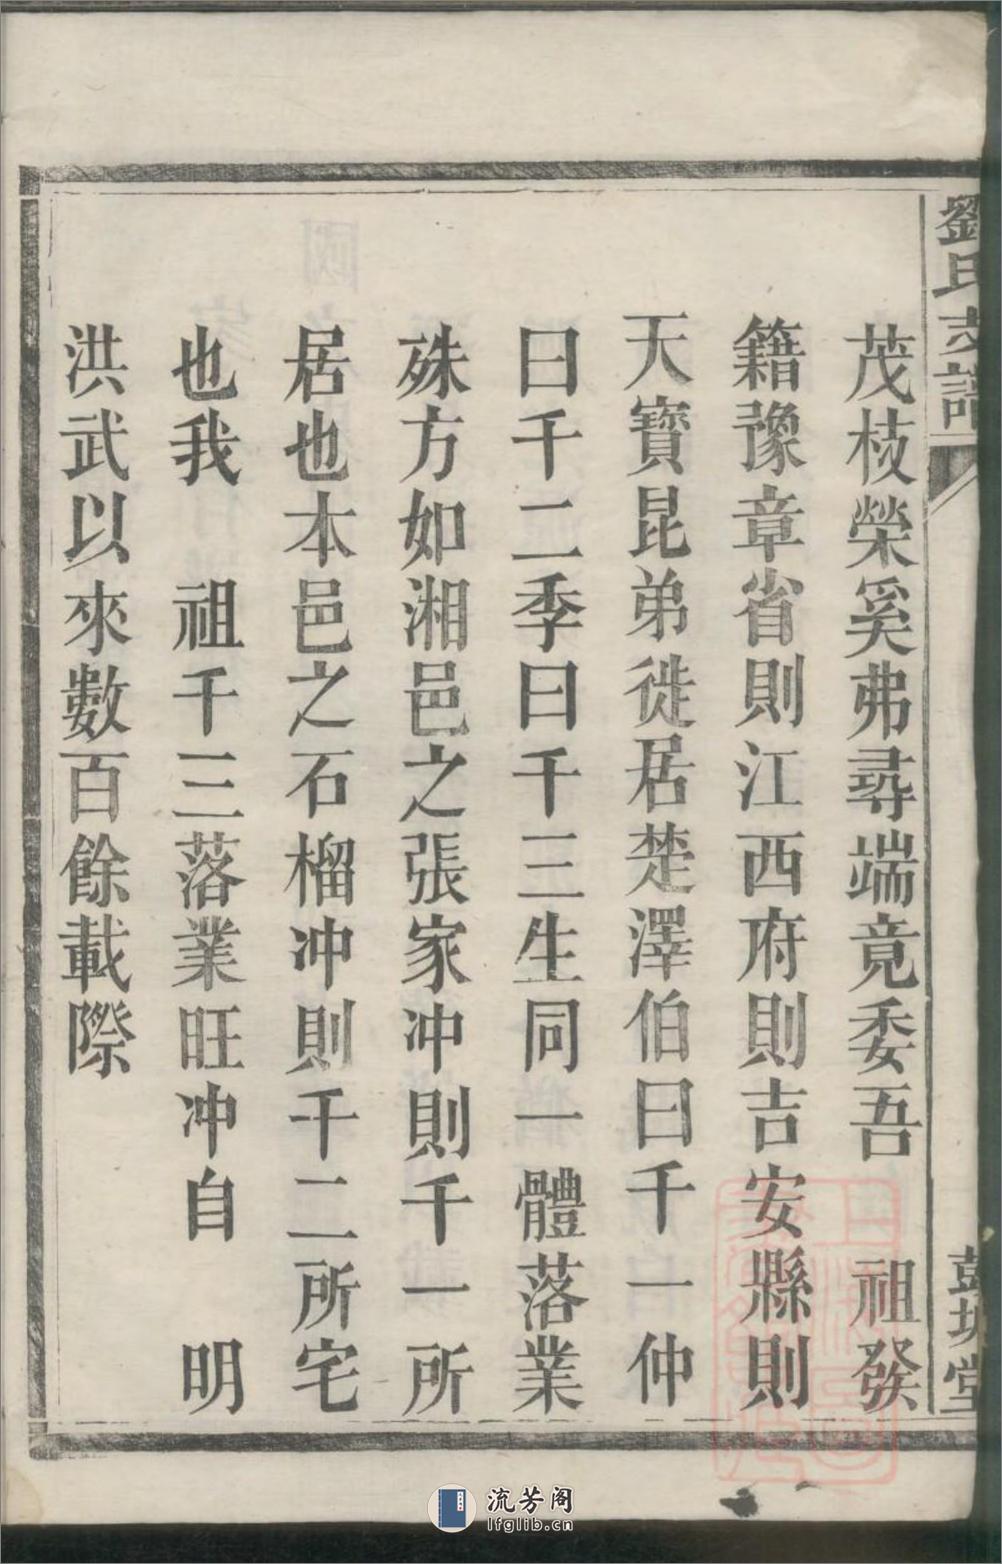 劉氏支譜
彭城堂
茂枝榮奚弗尋端竟委吾　祖發
籍豫章省則江西府則吉安縣則
天寶昆弟徙居楚澤伯曰千一仲
曰千二季曰千三生同一體落業
殊方如湘邑之張家冲則千一所
居也本邑之石榴冲則千二所宅
也我　祖千三落業旺冲自　明
洪武以來數百餘載際
流芳阁
lfglib.cn